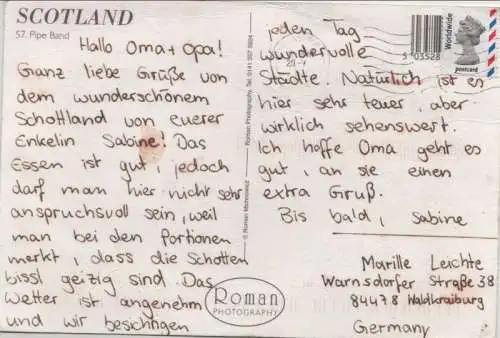 SCOTLAND
57. Pipe Band
Hallo Oma + Opa!
Ganz liebe Grüße von
dem wunderschönem
Schottland von euerer
Enkelin Sabine! Das
Essen ist gut, jedoch
darf man hier nicht sehr
anspruchsvoll sein, weil
man bei den Portionen
merkt, dass die Schotten
bissl geizig sind. Das
Wetter ist angenehm
und wir besichtigen
jeden Tag
wundervolle
Städte. Natürlich ist es
hier sehr teuer, aber
wirklich sehenswert.
Ich hoffe Oma geht es
gut, an sie einen
extra Gruß.
Bis bald, Sabine
Roman
PHOTOGRAPHY
Worldwide
postcard
5 03528
Marille Leichte
Warnsdorfer Straße 38
84478 Waldkraiburg
Germany